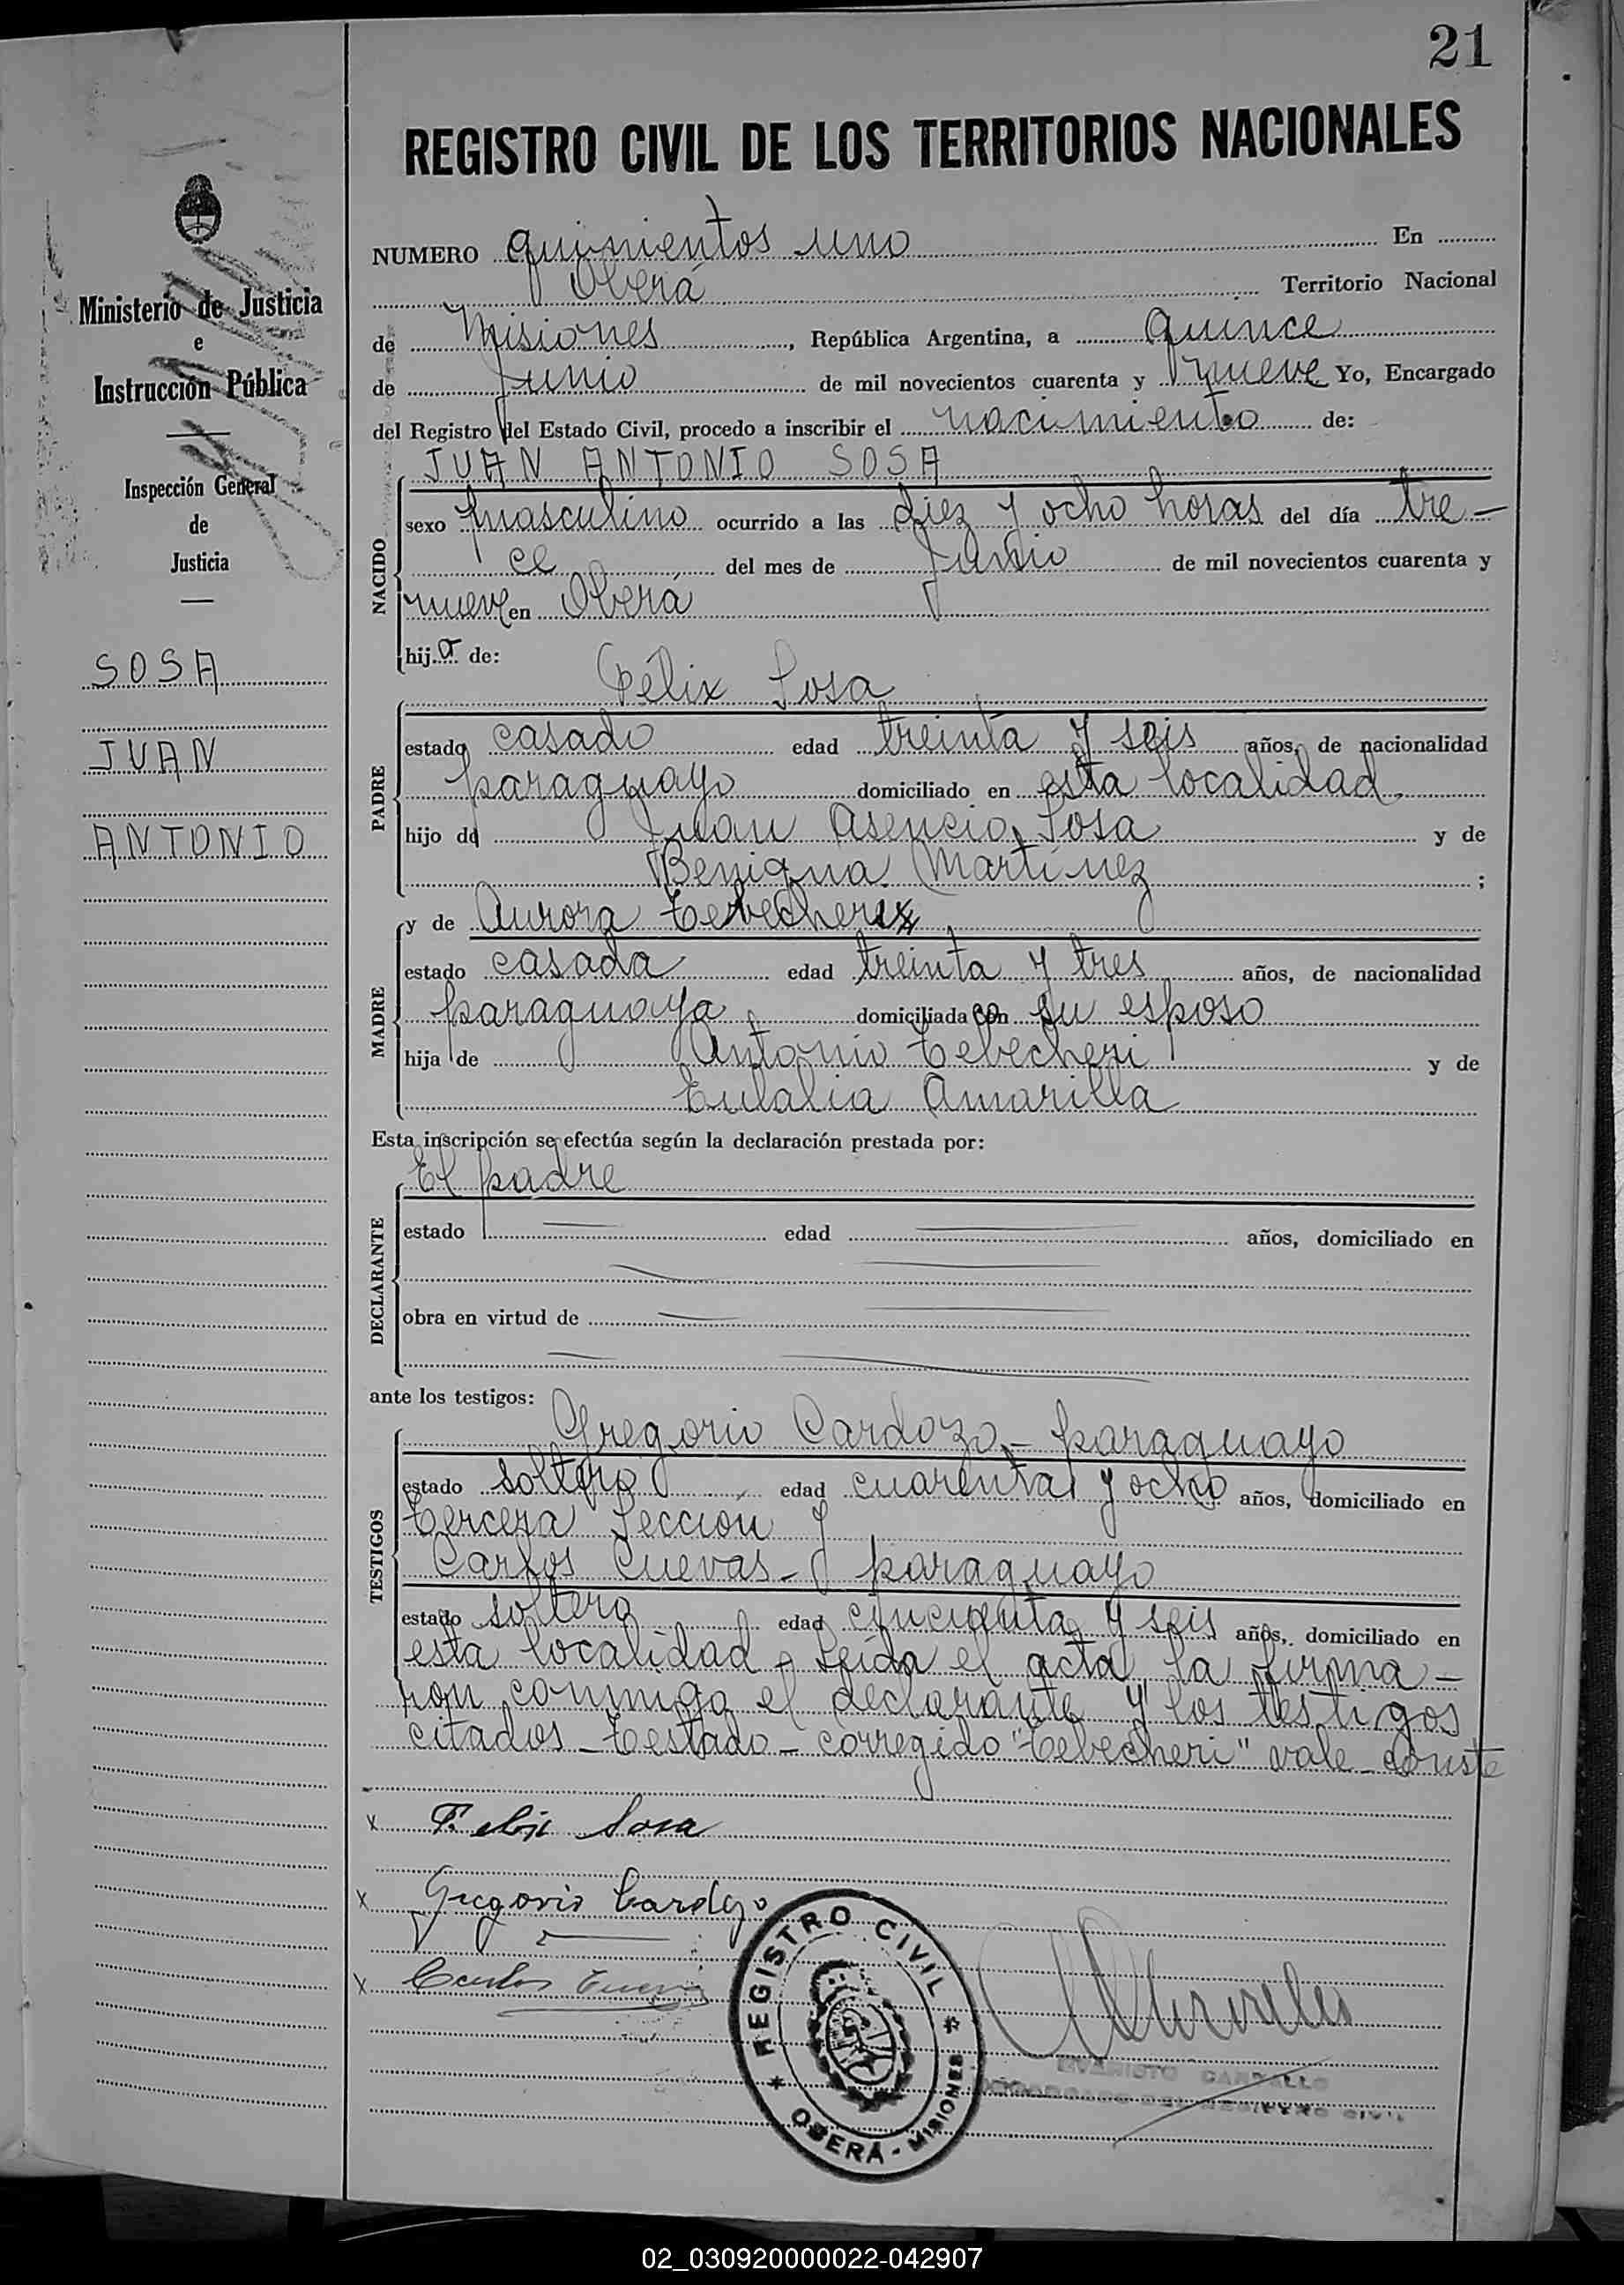 21
REGISTRO CIVIL DE LOS TERRITORIOS NACIONALES
NUMERO quinientos uno En
Oberá Territorio Nacional
de Misiones, República Argentina, a quince
de Junio de mil novecientos cuarenta y nueve Yo, Encargado
del Registro del Estado Civil, procedo a inscribir el nacimiento de:
JUAN ANTONIO SOSA
NACIDO
sexo masculino ocurrido a las diez y ocho horas del día tre-
ce del mes de Junio de mil novecientos cuarenta y
nueve en Oberá
hijo de:
Félix Sosa
PADRE
estado casado edad treinta y seis años, de nacionalidad
paraguayo domiciliado en esta localidad.
hijo de Juan Asencio Sosa y de
Benigna Martínez ;
y de Aurora Tebecheri
MADRE
estado casada edad treinta y tres años, de nacionalidad
paraguaya domiciliada con su esposo
hija de Antonio Tebecheri y de
Eulalia Amarilla
Esta inscripción se efectúa según la declaración prestada por:
El padre
DECLARANTE
estado edad años, domiciliado en
obra en virtud de
ante los testigos:
Gregorio Cardozo - paraguayo
TESTIGOS
estado soltero edad cuarenta y ocho años, domiciliado en
Tercera Sección y
Carlos Cuevas - paraguayo
estado soltero edad cincuenta y seis años, domiciliado en
esta localidad - Leída el acta la firma-
ron conmigo el declarante y los testigos
citados - Testado - corregido "Tebecheri" vale - Conste
x Felix Sosa
x Gregorio Cardozo
x Carlos Cuevas
REGISTRO CIVIL
OBERÁ - MISIONES
EVARISTO CARVALLO
ENCARGADO DEL REGISTRO CIVIL
Ministerio de Justicia
e
Instrucción Pública
Inspección General
de
Justicia
SOSA
JUAN
ANTONIO
02_030920000022-042907